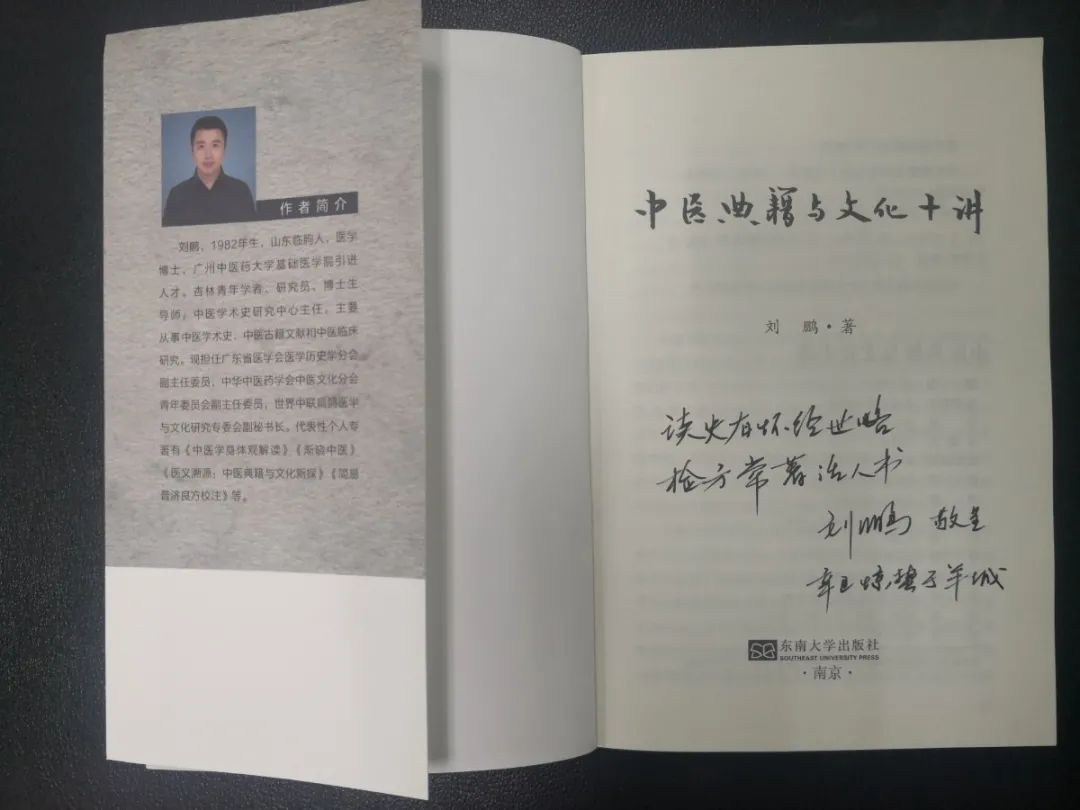 作者简介
刘鹏，1982年生，山东临朐人，医学
博士，广州中医药大学基础医学院引进
人才，杏林青年学者、研究员、博士生
导师，中医学术史研究中心主任，主要
从事中医学术史、中医古籍文献和中医临床
研究。现担任广东省医学会医学历史学分会
副主任委员，中华中医药学会中医文化分会
青年委员会副主任委员，世界中联扁鹊医学
与文化研究专委会副秘书长。代表性个人专
著有《中医学身体观解读》《渐晓中医》
《医义溯源：中医典籍与文化新探》《简易
普济良方校注》等。
中医典籍与文化十讲
刘 鹏·著
读史有怀经世略
检方常著活人书
刘鹏 敬呈
辛丑惊蛰于羊城
东南大学出版社
SOUTHEAST UNIVERSITY PRESS
·南京·